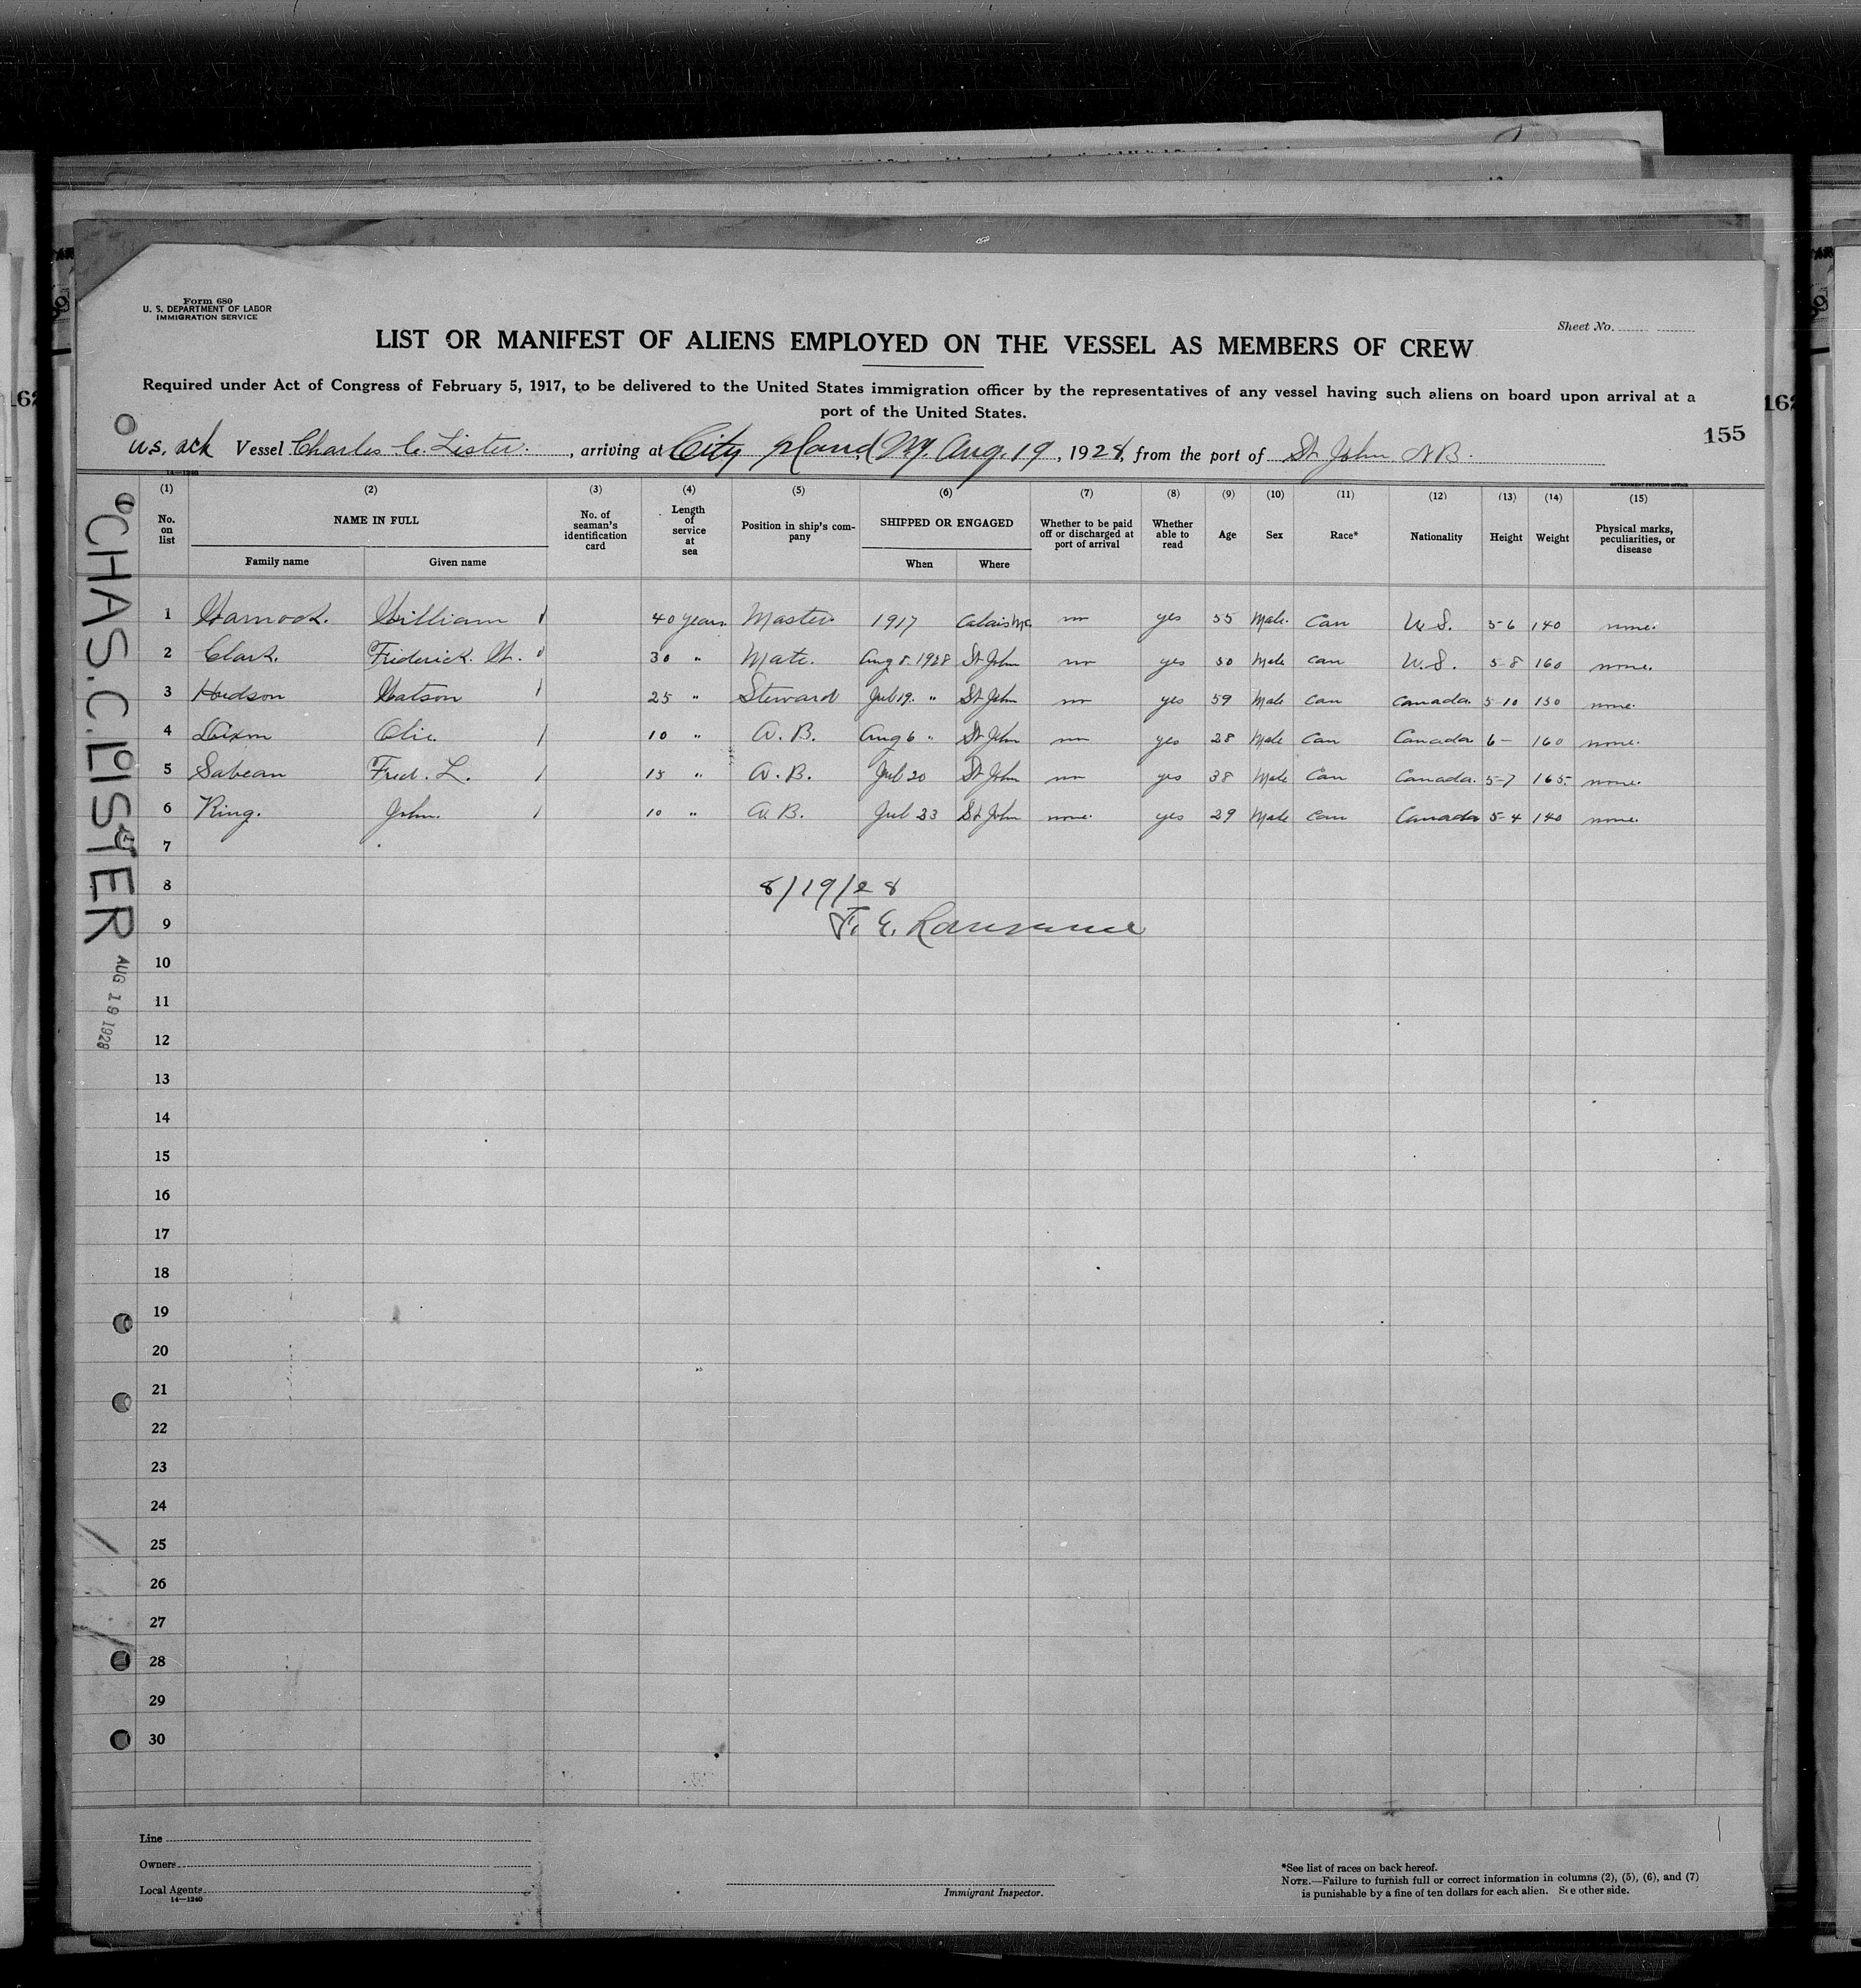 Form 680
U. S. DEPARTMENT OF LABOR
IMMIGRATION SERVICE
Sheet No.
LIST OR MANIFEST OF ALIENS EMPLOYED ON THE VESSEL AS MEMBERS OF CREW
Required under Act of Congress of February 5, 1917, to be delivered to the United States immigration officer by the representatives of any vessel having such aliens on board upon arrival at a
port of the United States.
162
162
155
U.S. Vessel Charles C. Lister, arriving at City Island, NY. Aug. 19, 1928, from the port of St John N B.
14—1240
GOVERNMENT PRINTING OFFICE
(1) (2) (3) (4) (5) (6) (7) (8) (9) (10) (11) (12) (13) (14) (15)
No. on list NAME IN FULL No. of seaman's identification card Length of service at sea Position in ship's company SHIPPED OR ENGAGED Whether to be paid off or discharged at port of arrival Whether able to read Age Sex Race* Nationality Height Weight Physical marks, peculiarities, or disease
Family name Given name When Where
1 William 40 years Master 1917 Calais Me. no yes 55 Male. Can U.S. 5-6 140 none.
2 Clark. Friderick. W. 30 " Mate. Aug 8. 1928 St John no yes 50 Male Can U.S. 5-8 160 none.
3 Hudson Watson 25 " Steward Jul 19. " St John no yes 59 Male Can Canada. 5-10 150 none.
4 Dixon Olie. 10 " A. B. Aug 6 " St John no yes 28 Male Can Canada 6- 160 none.
5 Sabean Fred. L. 15 " A. B. Jul 20 St John no yes 38 Male Can Canada. 5-7 165 none.
6 King. John. 10 " A. B. Jul 23 St John none. yes 29 Male Can Canada 5-4 140 none.
7
8 8/19/28
9 F. E.
10
11
12
13
14
15
16
17
18
19
20
21
22
23
24
25
26
27
28
29
30
CHAS. C. LISTER
AUG 19 1928
Line
Owners
Local Agents
14—1240
Immigrant Inspector.
*See list of races on back hereof.
NOTE.—Failure to furnish full or correct information in columns (2), (5), (6), and (7)
is punishable by a fine of ten dollars for each alien. See other side.